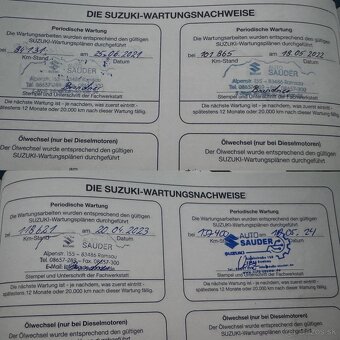 DIE SUZUKI-WARTUNGSNACHWEISE
Periodische Wartung
Die Wartungsarbeiten wurden entsprechend den gültigen
SUZUKI-Wartungsplänen durchgeführt
bei 84131 am 25.06.2021
Km-Stand Datum
SAUDER
Stempel und Unterschrift der Fachwerkstatt
Die nächste Wartung ist - je nachdem, was zuerst eintritt -
spätestens 12 Monate oder 20.000 km nach diesem Wartung fällig.
Ölwechsel (nur bei Dieselmotoren)
Der Ölwechsel wurde entsprechend den gültigen
SUZUKI-Wartungsplänen durchgeführt
Periodische Wartung
Die Wartungsarbeiten wurden entsprechend den gültigen
SUZUKI-Wartungsplänen durchgeführt
bei 101.865 am 18.05.2022
Km-Stand Datum
SAUDER
Stempel und Unterschrift der Fachwerkstatt
Die nächste Wartung ist - je nachdem, was zuerst eintritt -
spätestens 12 Monate oder 20.000 km nach diesem Wartung fällig.
Ölwechsel (nur bei Dieselmotoren)
Der Ölwechsel wurde entsprechend den gültigen
SUZUKI-Wartungsplänen durchgeführt
DIE SUZUKI-WARTUNGSNACHWEISE
Periodische Wartung
Die Wartungsarbeiten wurden entsprechend den gültigen
SUZUKI-Wartungsplänen durchgeführt
bei 118621 am 20.04.2023
Km-Stand Datum
SAUDER
Alpenstr. 155 - 83486 Ramsau
Stempel und Unterschrift der Fachwerkstatt
Die nächste Wartung ist - je nachdem, was zuerst eintritt -
spätestens 12 Monate oder 20.000 km nach diesem Wartung fällig.
Ölwechsel (nur bei Dieselmotoren)
Der Ölwechsel wurde entsprechend den gültigen
Periodische Wartung
Die Wartungsarbeiten wurden entsprechend den gültigen
SUZUKI-Wartungsplänen durchgeführt
bei
Km-Stand AUTO Datum
SAUDER
SUZUKI
Stempel und Unterschrift der Fachwerkstatt
Die nächste Wartung ist - je nachdem, was zuerst eintritt -
spätestens 12 Monate oder 20.000 km nach diesem Wartung fällig.
Ölwechsel (nur bei Dieselmotoren)
Der Ölwechsel wurde entsprechend den gültigen